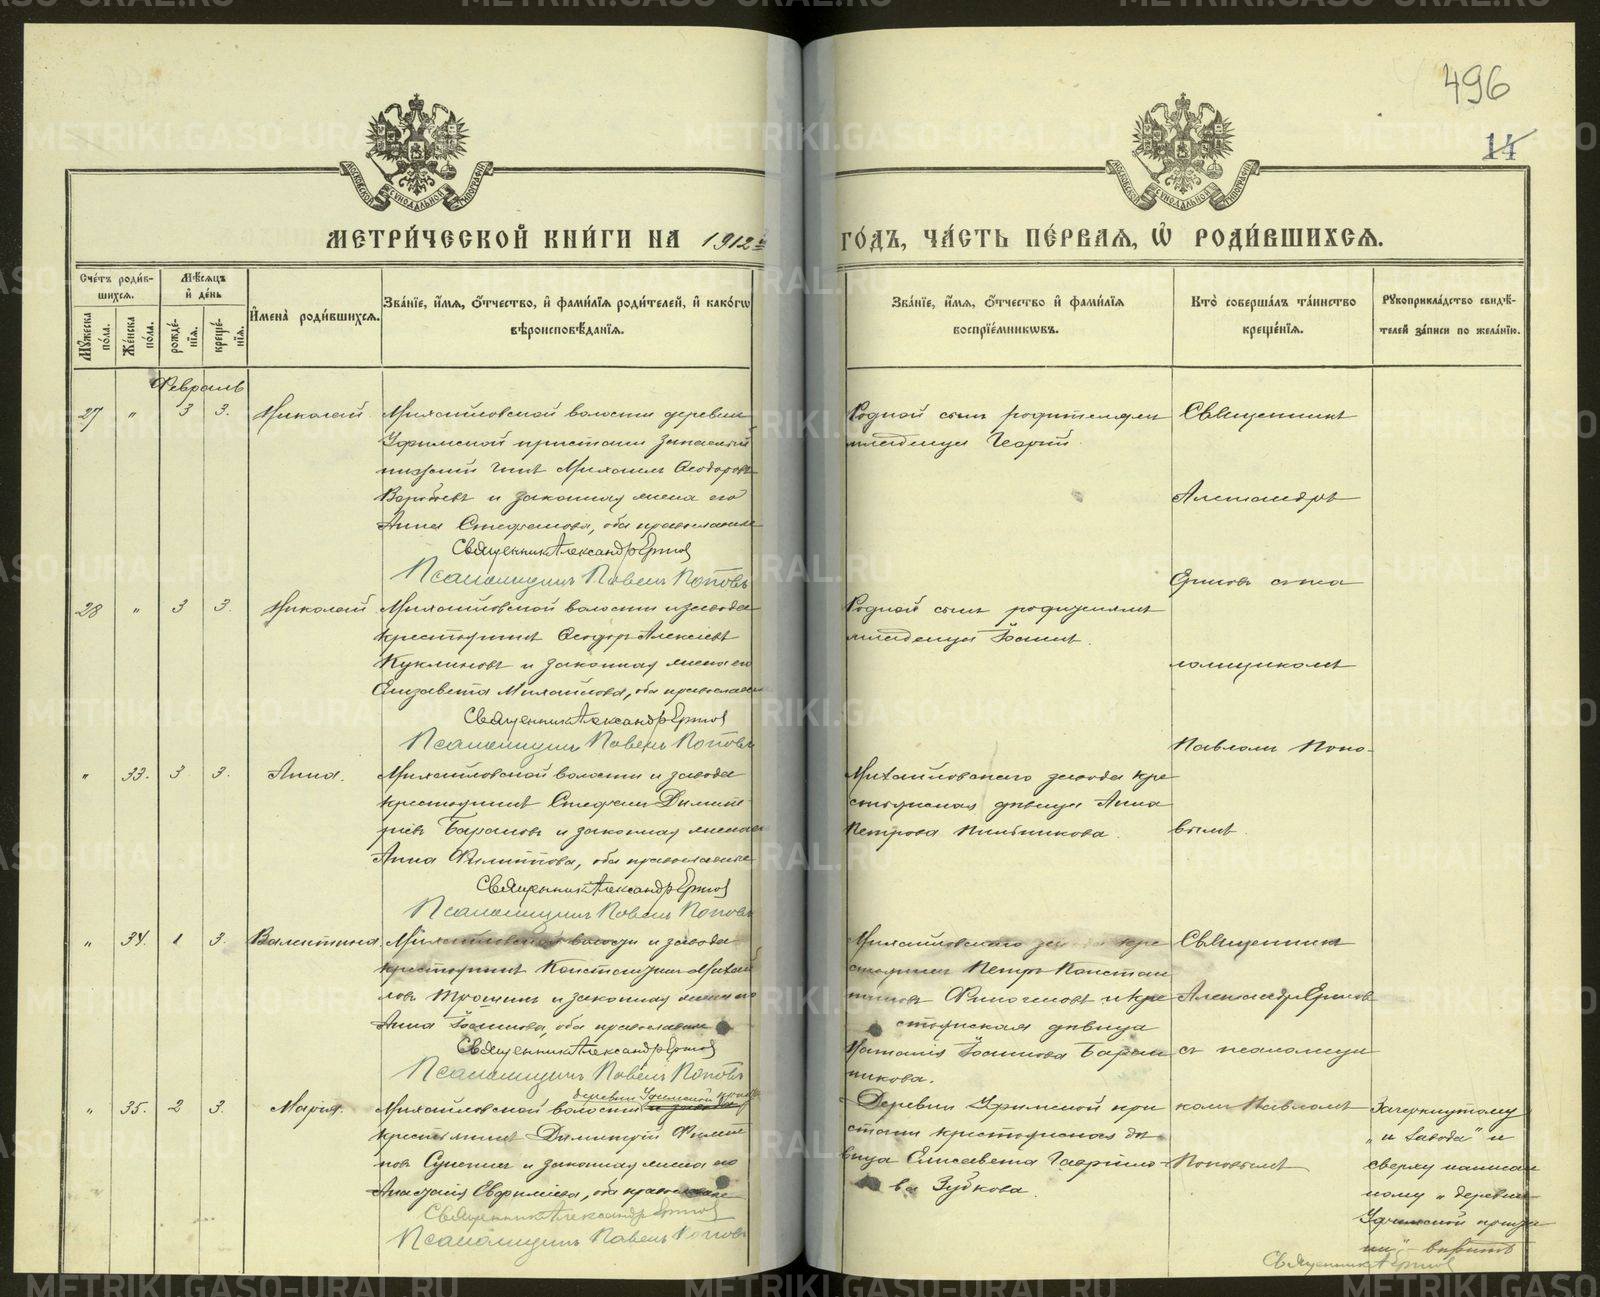 496
14
МОСКОВСКОЙ СѴНОДАЛЬНОЙ ТИПОГРАФІИ
МОСКОВСКОЙ СѴНОДАЛЬНОЙ ТИПОГРАФІИ
МЕТРИ́ЧЕСКОЙ КНИ́ГИ НА 1912й ГО́ДЪ, ЧА́СТЬ ПЕ́РВАЯ, Ѡ РОДИ́ВШИХСЯ.
Сче́тъ роди́в-
шихся.
Му́жеска по́ла.
Же́нска по́ла.
Мѣ́сяцъ
и де́нь
рожде́нія.
креще́нія.
И҆мена̀ роди́вшихся.
Зва́ніе, и҆́мя, ѻ҆́тчество, и҆ фами́лія роди́телей, и҆ како́гѡ
вѣроисповѣ́данія.
Зва́ніе, и҆́мя, ѻ҆́тчество и҆ фами́лія
воспріе́мниковъ.
Кто̀ соверша́лъ та́инство
креще́нія.
Рукоприкла́дство свидѣ́-
телей за́писи по жела́нію.
Февраль
27 " 3 3. Николай.
Михайловской волости деревни
Уфимской пристани запасный
нижній чинъ Михаилъ Ѳеодоровъ
Воробьевъ и законная жена его
Анна Стефанова, оба православные
Священник Александр Ершов
Псаломщикъ Павелъ Поповъ
Родной сынъ родителями
младенца Георгій.
28 " 3 3. Николай
Михайловской волости и завода
крестьянинъ Ѳеодоръ Алексѣевъ
Куклиновъ и законная жена его
Елизавета Михайлова, оба православные
Священник Александр Ершов
Псаломщикъ Павелъ Поповъ
Родной сынъ родителямъ
младенца Іоаннъ.
" 33. 3 3. Анна.
Михайловской волости и завода
крестьянинъ Стефанъ Димитріевъ
Барановъ и законная жена его
Анна Филиппова, оба православные
Священник Александр Ершов
Псаломщикъ Павелъ Поповъ
Михайловскаго завода кре
стьянская дѣвица Анна
Петрова Пильникова.
Священникъ
Александръ
Ершовъ съ пса
ломщикомъ
Павломъ Попо-
вымъ.
" 34. 1 3. Валентина
Михайловской волости и завода
крестьянинъ Константинъ Михай
ловъ Трошинъ и законная жена его
Анна Іоаннова, оба православные
Священник Александр Ершов
Псаломщикъ Павелъ Поповъ
Михайловскаго завода кре
стьянинъ Петръ Констан
тиновъ Финогеновъ и кре
стьянская дѣвица
Наталія Іоаннова Баран
никова.
Священникъ
Александръ Ершовъ
съ псаломщи
комъ Павломъ
Поповымъ
" 35. 2 3. Марія.
деревни Уфимской приста
Михайловской волости и завода
крестьянинъ Димитрій Филип
повъ и законная жена его
Анастасія Евфиміева, оба православные
Священник Александр Ершов
Псаломщикъ Павелъ Поповъ
Деревни Уфимской при
стани крестьянская дѣ
вица Елисавета Гаврило-
ва Зубкова.
Зачеркнутому
„и завода" и
сверху написан
ному „деревни
Уфимской приста
ни" – вѣрить
Священник А Ершов